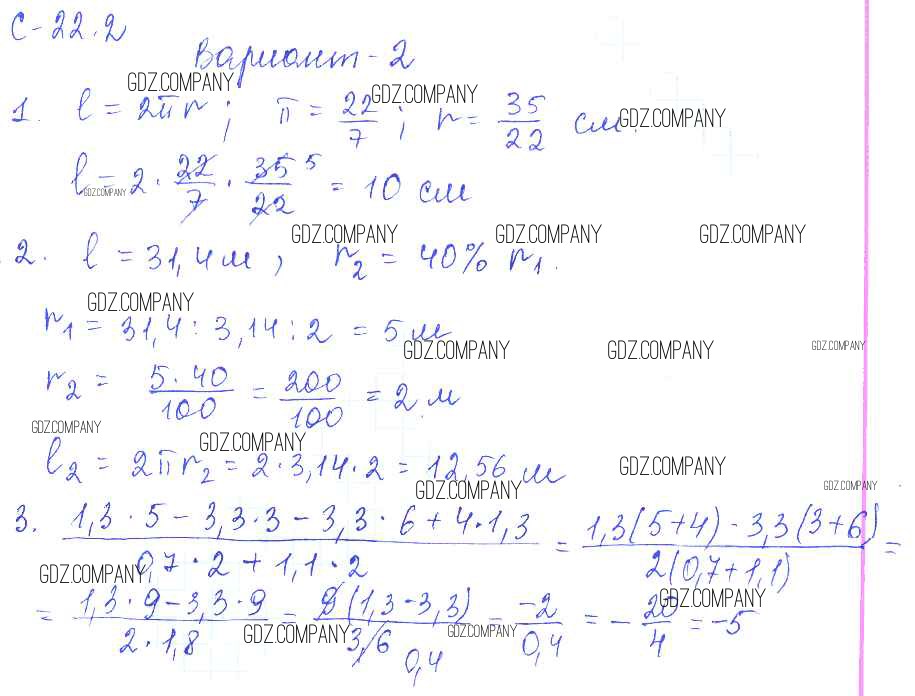 С-22.2
Вариант-2
GDZ.COMPANY
GDZ.COMPANY
1. l = 2πr ; π = 22/7 ; r = 35/22 см.
GDZ.COMPANY
l = 2 · 22/7 · 35/22 5 = 10 см
GDZ.COMPANY
GDZ.COMPANY GDZ.COMPANY GDZ.COMPANY
2. l = 31,4 м , r2 = 40% r1.
GDZ.COMPANY
r1 = 31,4 : 3,14 : 2 = 5 м
GDZ.COMPANY GDZ.COMPANY GDZ.COMPANY
r2 = 5·40/100 = 200/100 = 2 м
GDZ.COMPANY
GDZ.COMPANY
l2 = 2πr2 = 2·3,14·2 = 12,56 м
GDZ.COMPANY
GDZ.COMPANY GDZ.COMPANY
3. 1,3·5 - 3,3·3 - 3,3·6 + 4·1,3 / 0,7·2 + 1,1·2 = 1,3(5+4) - 3,3(3+6) / 2(0,7+1,1) =
GDZ.COMPANY
GDZ.COMPANY
= 1,3·9 - 3,3·9 / 2·1,8 = 9(1,3-3,3) / 3,6 0,4 = -2/0,4 = - 20/4 = -5
GDZ.COMPANY GDZ.COMPANY